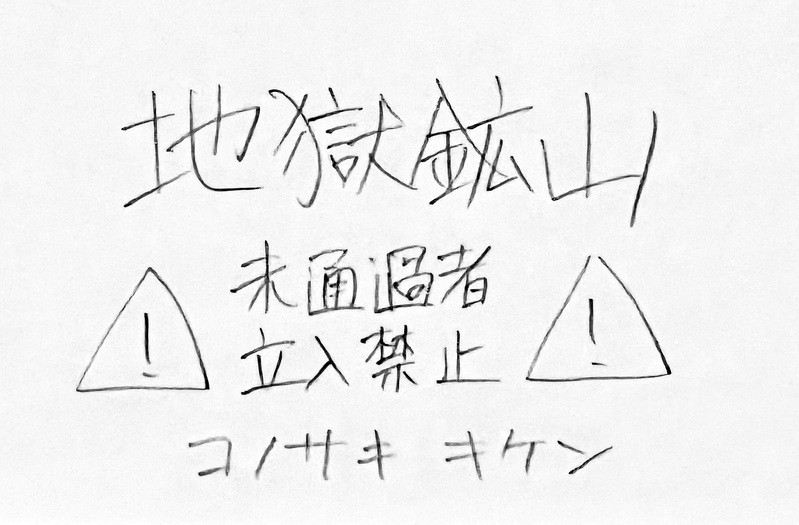 地獄鉱山
未通過者
立入禁止
コノサキ キケン